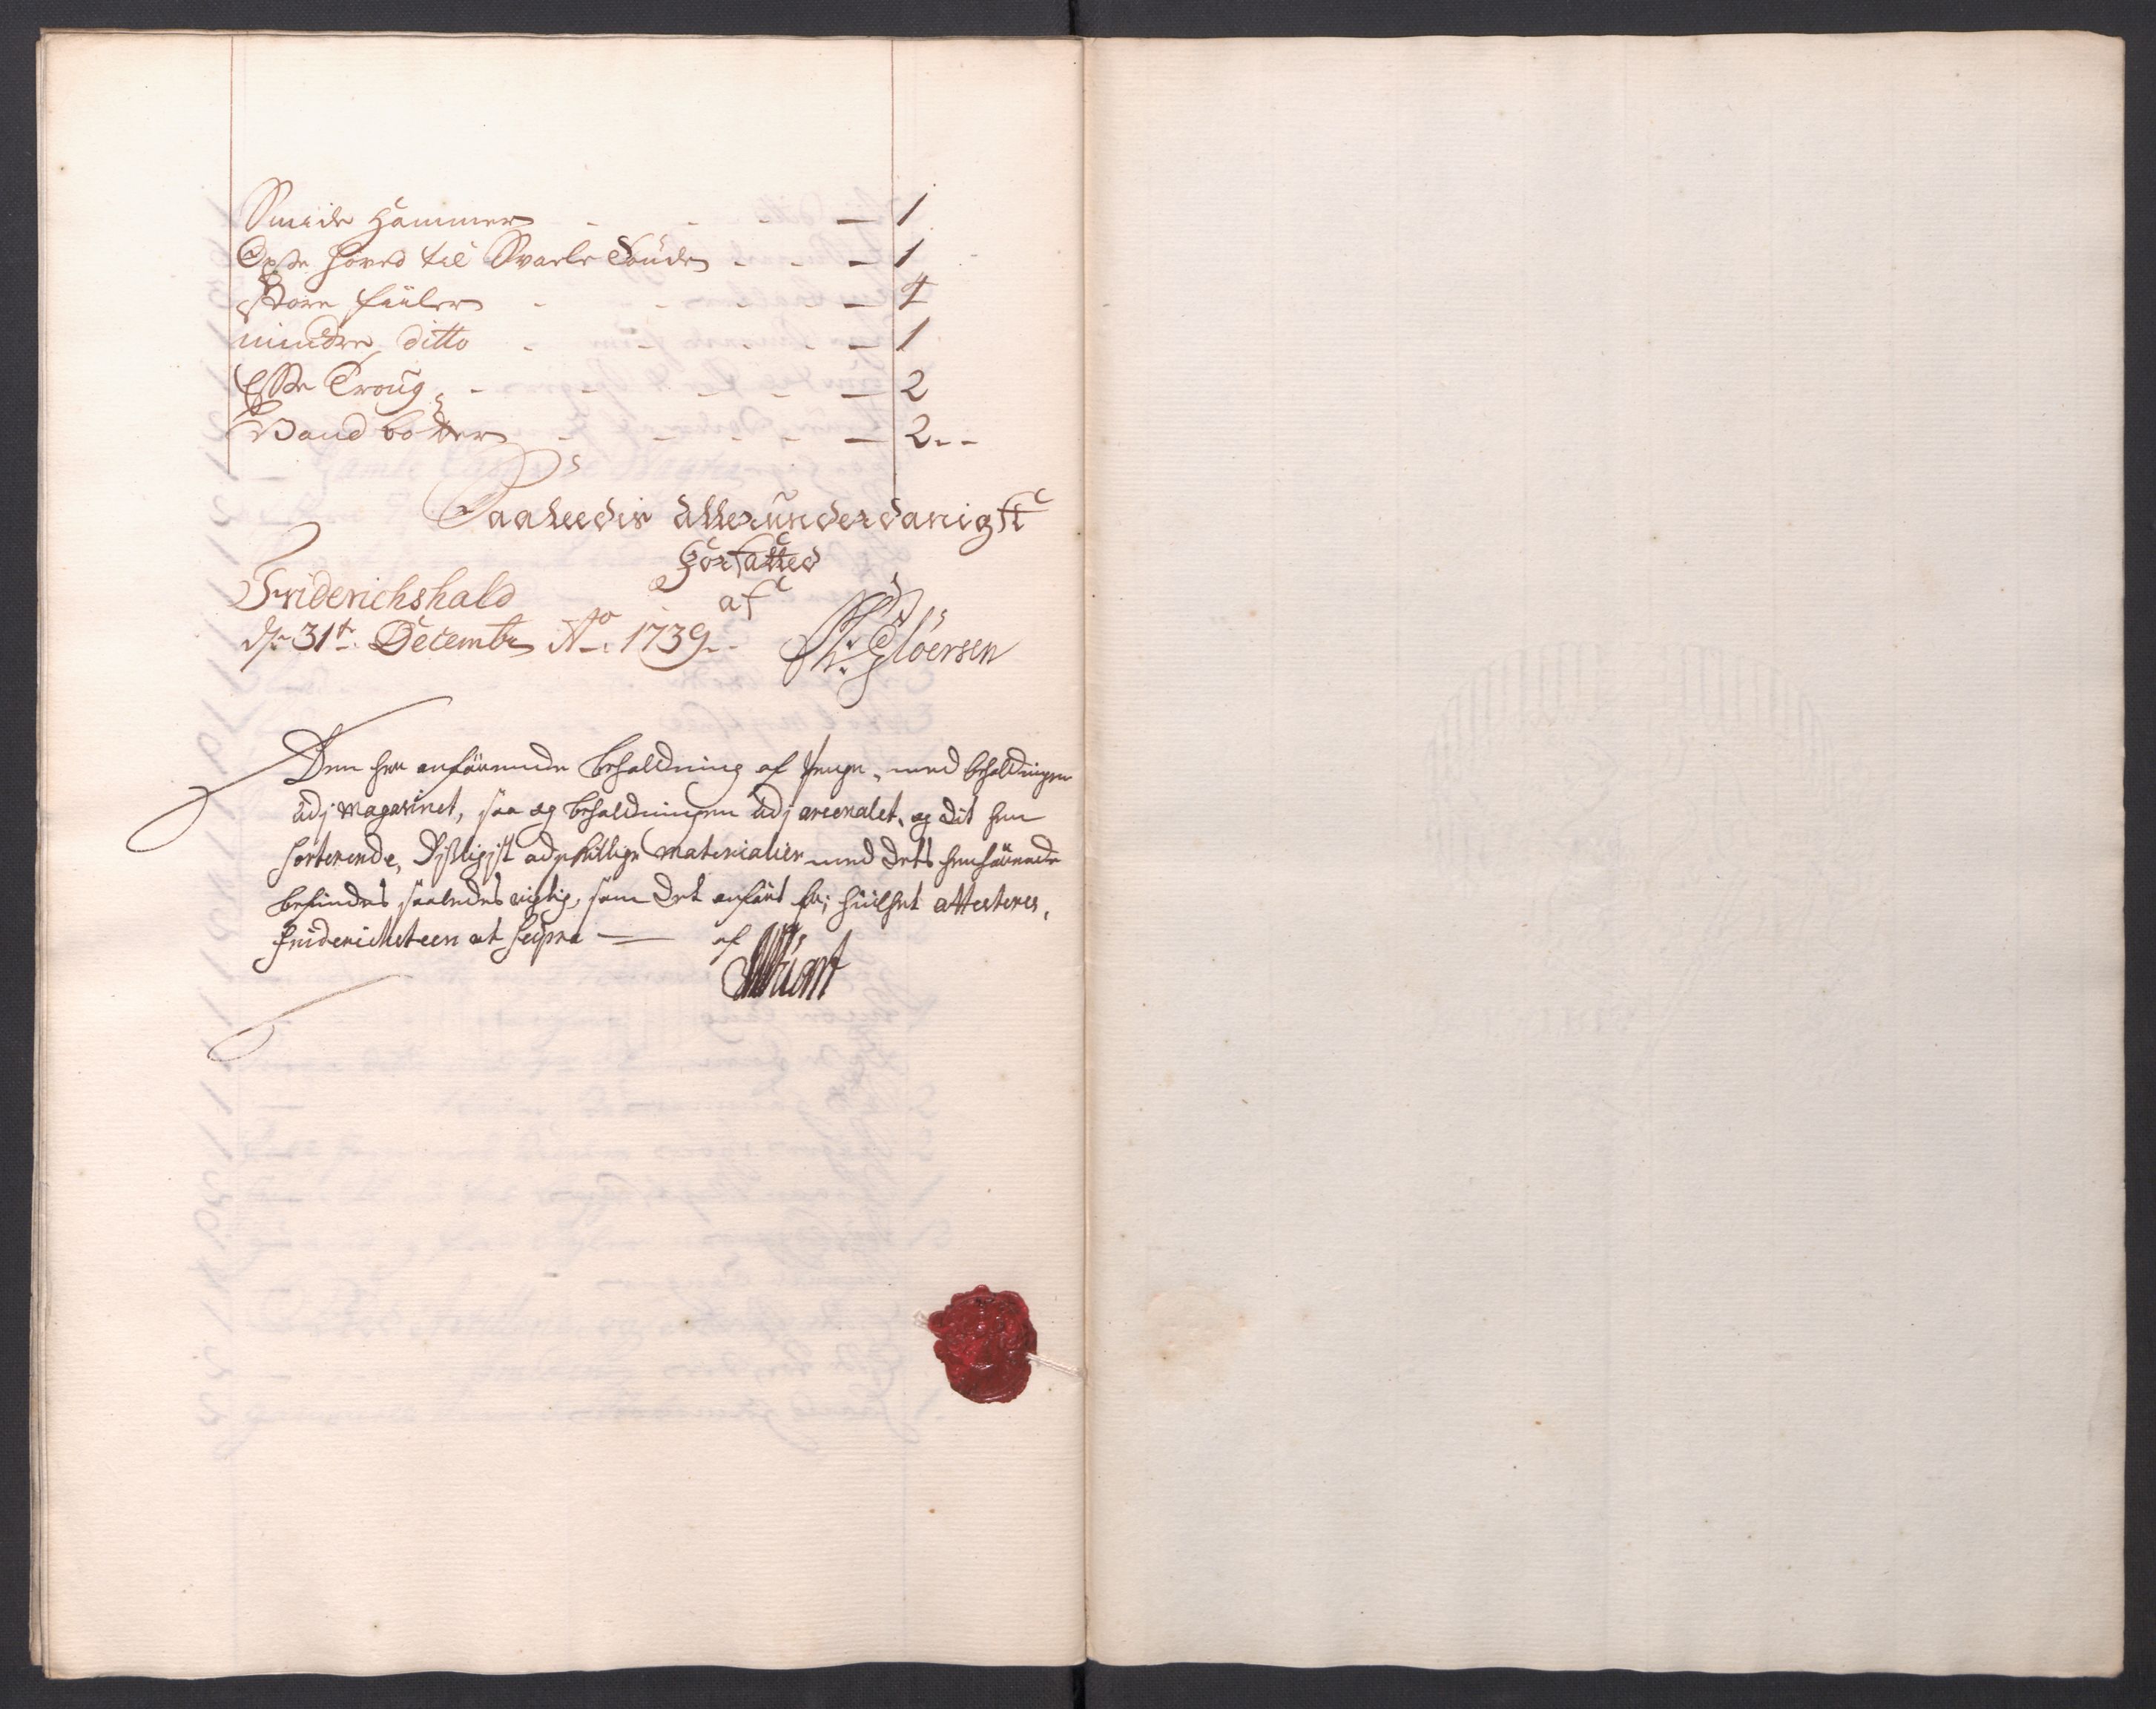 Smide Hammer - - - - 1
hoved til Svarle - - - 1
Store fiiler - - - - - 4
mindre ditto - - - - - 1
Esse Troug - - - - - 2
Vand bøtter - - - - - 2 - -
Saaleedis allerunderdanigst
Forfatted
Friderichshald af
d: 31t. Decembr Ao. 1739 - - Gløersen
Den her anførende behaldning af penge, med behaldningen
udj Magazinet, saa og behaldningen udj arsenalet, og dit hen
horterende, Disligist adskillige Materialier med dets henhørende
befindes saaledes rigtig, som det anført er; huilket attesteres,
Friderichsteen ut supra — af